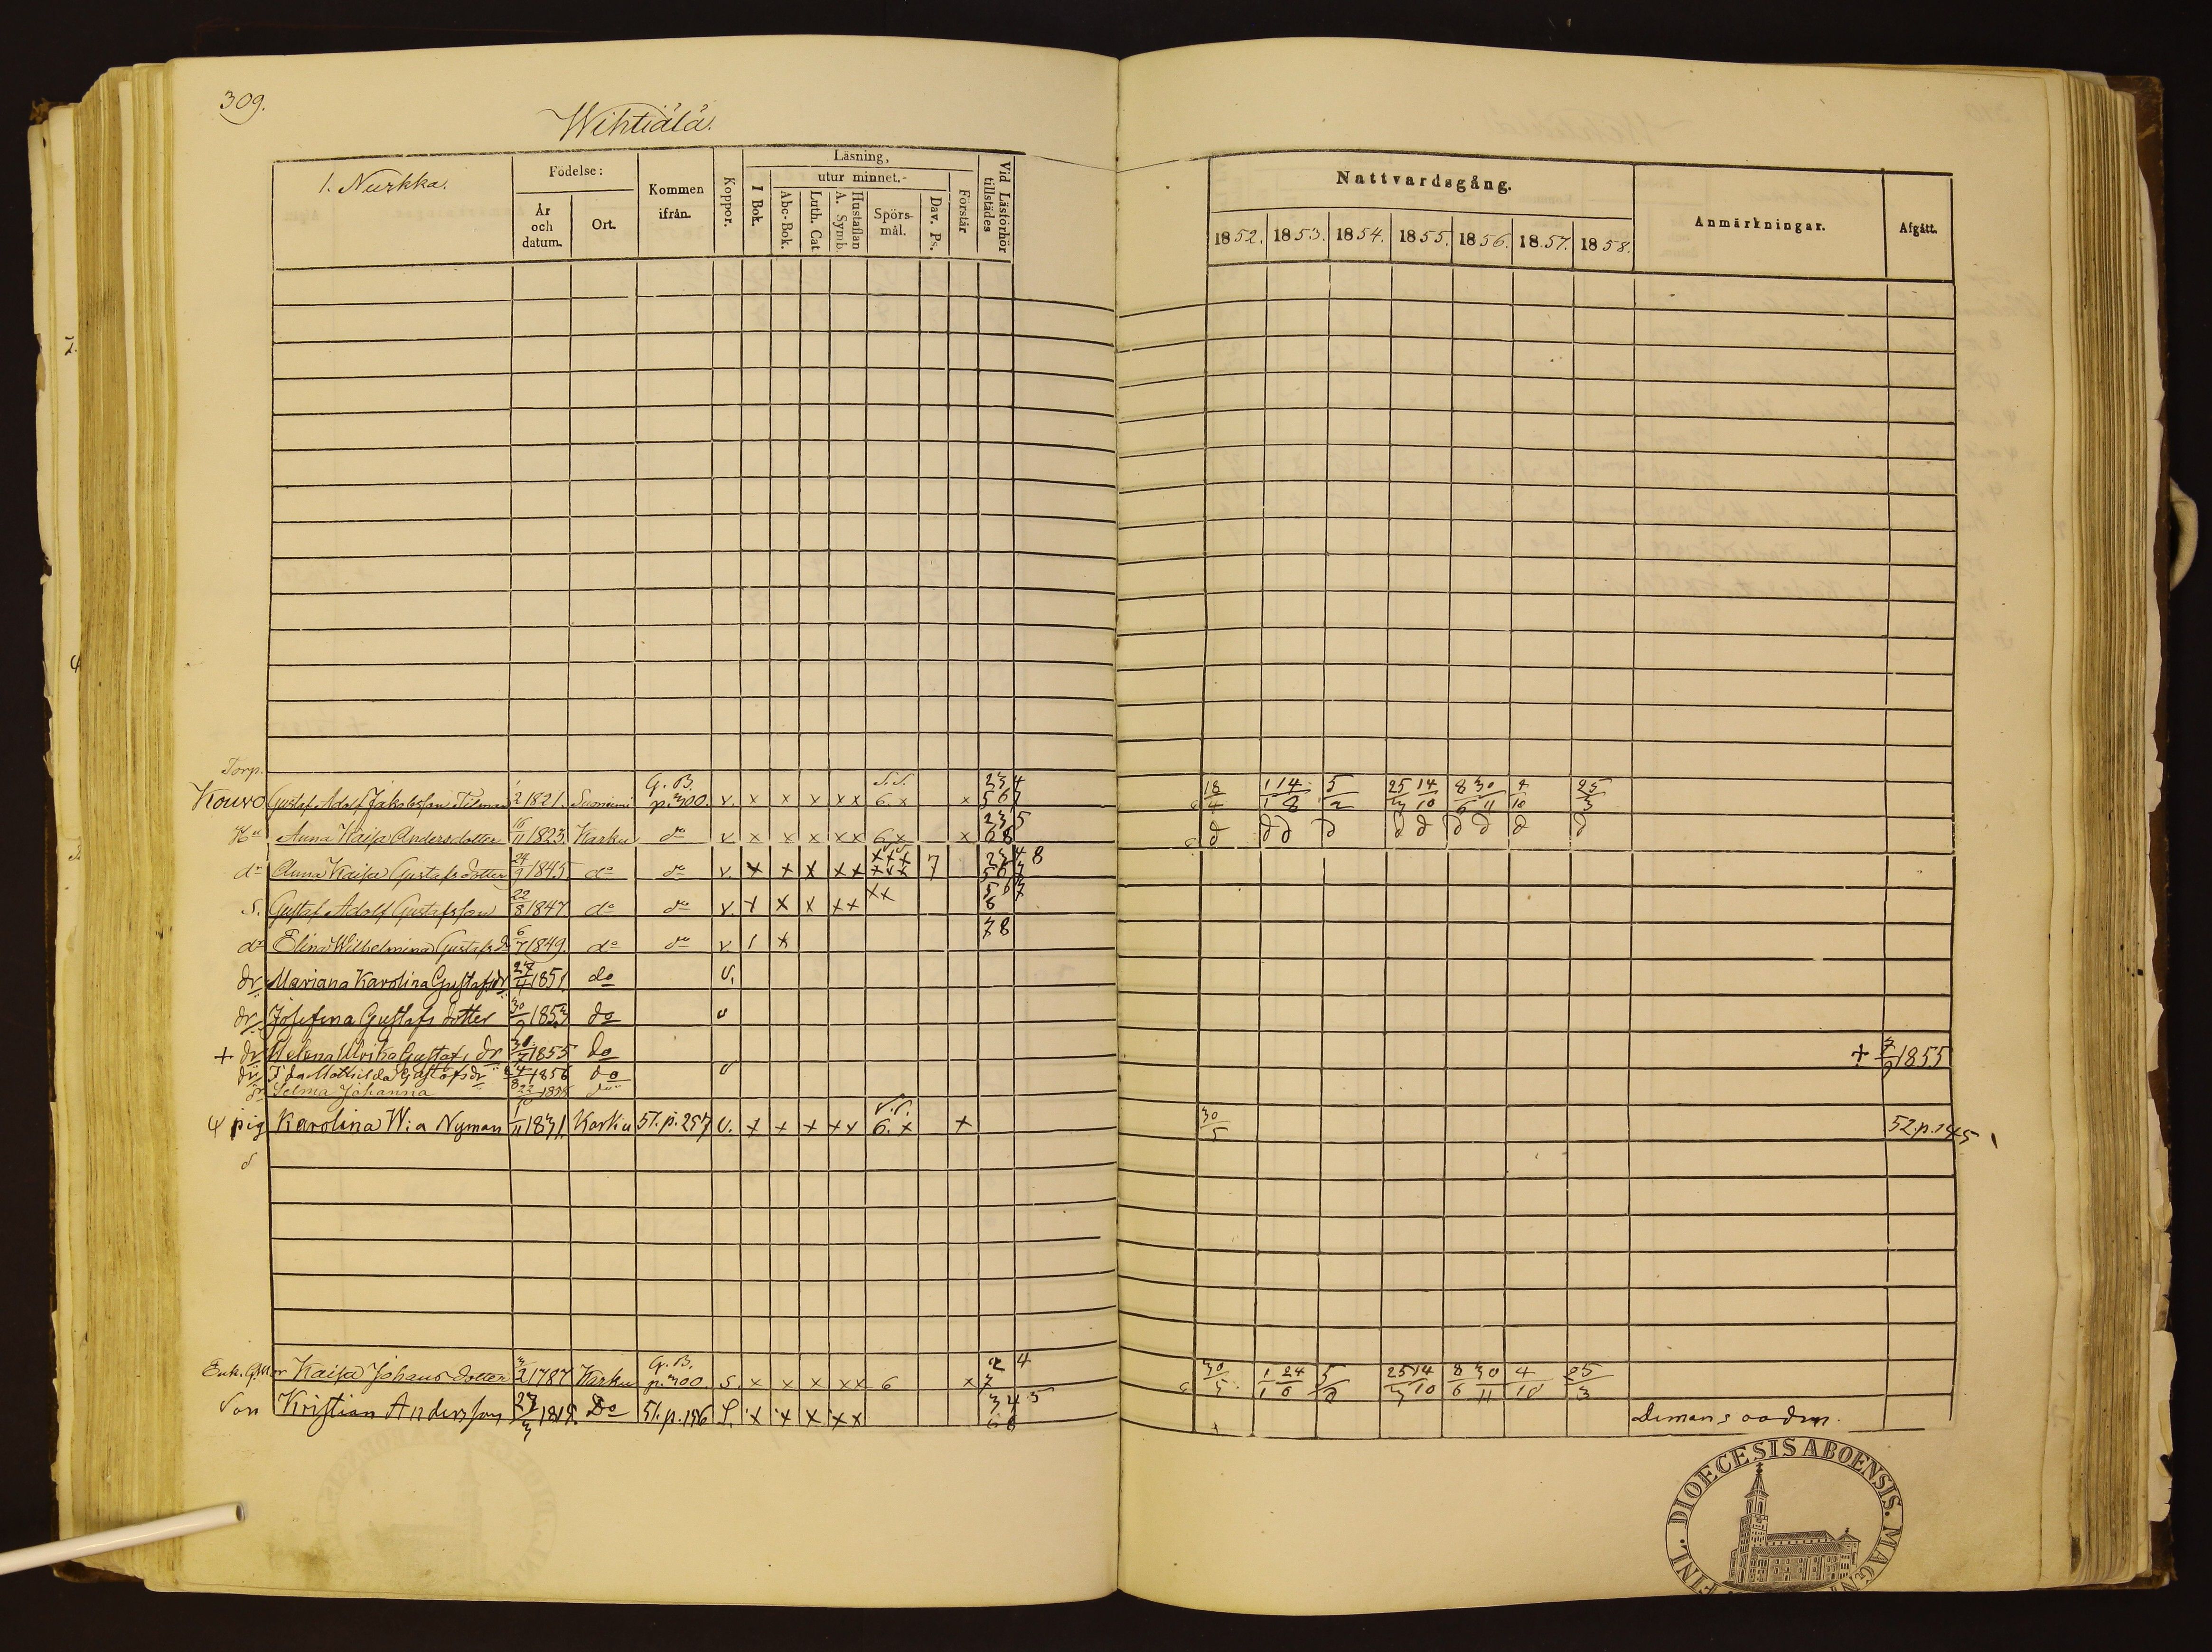 309.
Wihtiälä.
1. Nurkka.
Födelse:
År och datum.
Ort.
Kommen ifrån.
Koppor.
Läsning,
I Bok.
utur minnet.
Abc-Bok.
Luth. Cat
Hustaflan A. Symb.
Spörs-mål.
Dav. Ps.
Förstår
Vid Läsförhör tillstädes
Nattvardsgång.
1852. 1853. 1854. 1855. 1856. 1857. 1858.
Anmärkningar.
Afgått.
Torp.
Kouvo Gustaf Adolf Jakobsson Tilman 1/2 1821. Suoniemi G. B. p. 300. v. x x x x x S.S. 6. x x 2 3 4 5 6 7 18/4 1/1 14/8 5/2 25/3 14/10 8/6 30/11 4/10 25/3
Hu Anna Kaisa Andersdotter 16/11 1823. Karku do v. x x x x x 6 x x 2 3 5 6 8 d d d d d d d d d d
dr Anna Kaisa Gustafsdotter 24/9 1845 do do v. x x x x x x x x x x x 7 7 2 3 4 8 5 6 7
S. Gustaf Adolf Gustafsson 22/8 1847 do do v. x x x x x x x 5 6 7 8
dr Elina Wilhelmina Gustafs dr 6/7 1849. do do v. 1 x 7 8
dr Mariana Karolina Gustafs dr 27/4 1851. do v.
dr Josefina Gustafs dotter 30/9 1853 do v
+ dr Helena Ulrika Gustafs dr 30/7 1855 do + 3/9 1855
dr Ida Mathilda Gustafs dr 24/8 1856 do v
dr Selma Johanna 22/10 1858 do
pig Karolina W:a Nyman 1/11 1831. Karku 51. p. 257 v. x x x x x S.S. 6. x x 30/5 52. p. 145
Enk. G.Mor Kaisa Johansdotter 3/2 1787 Karku G. B. p. 300 S. x x x x x 6 x 2 4 7 30/5 1/1 24/6 25/3 14/10 8/6 30/11 4/10 25/3
Son Kristian Andersson 27/3 1818. Do 51. p. 196 S. x x x x x 3 4 5 6 8
DIOECESIS ABOENSIS. MAGNI
FINL.